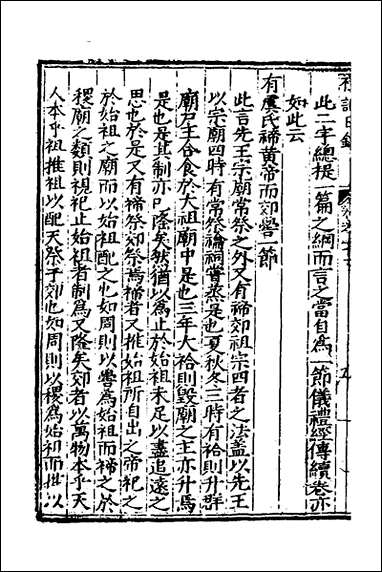 此二字總提一篇之綱而言之當自為一節儀禮經傳續卷亦
如此云
有虞氏禘黄帝而郊嚳一節
此言先王宗廟常祭之外又有禘郊祖宗四者之法蓋以先王
以宗廟四時有常祭禴祠嘗蒸是也夏秋冬三時有祫則升群
廟之主合食於大祖廟中是也三年大祫則毀廟之主亦升焉
是也是其制亦已隆矣然猶以為止於始祖未足以盡追遠之
思也於是又有禘祭郊祭焉禘者又推始祖所自出之帝祀之
於始祖之廟而以始祖配之也如周則以嚳為始祖而禘之於
稷廟之類則視祀止始祖者制為又隆矣郊者以萬物本乎天
人本乎祖推祖以配天祭于郊也如周則以稷為始祖而推以